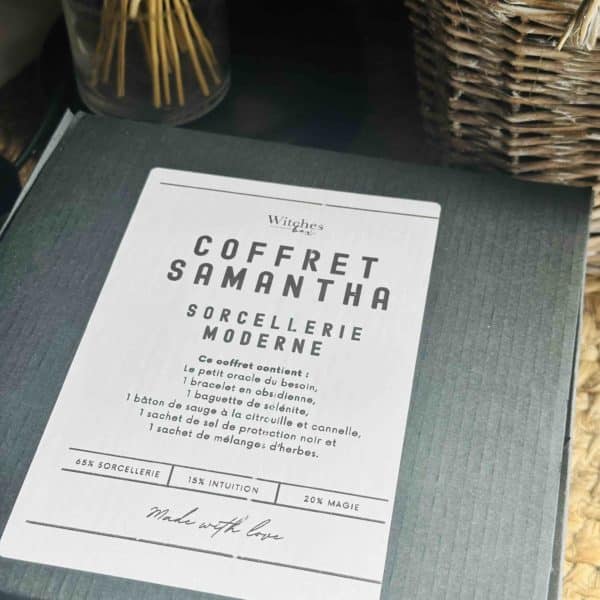 Witches
box
COFFRET
SAMANTHA
SORCELLERIE
MODERNE
Ce coffret contient :
Le petit oracle du besoin,
1 bracelet en obsidienne,
1 baguette de sélénite,
1 bâton de sauge à la citrouille et cannelle,
1 sachet de sel de protection noir et
1 sachet de mélanges d'herbes.
65% SORCELLERIE
15% INTUITION
20% MAGIE
Made with love